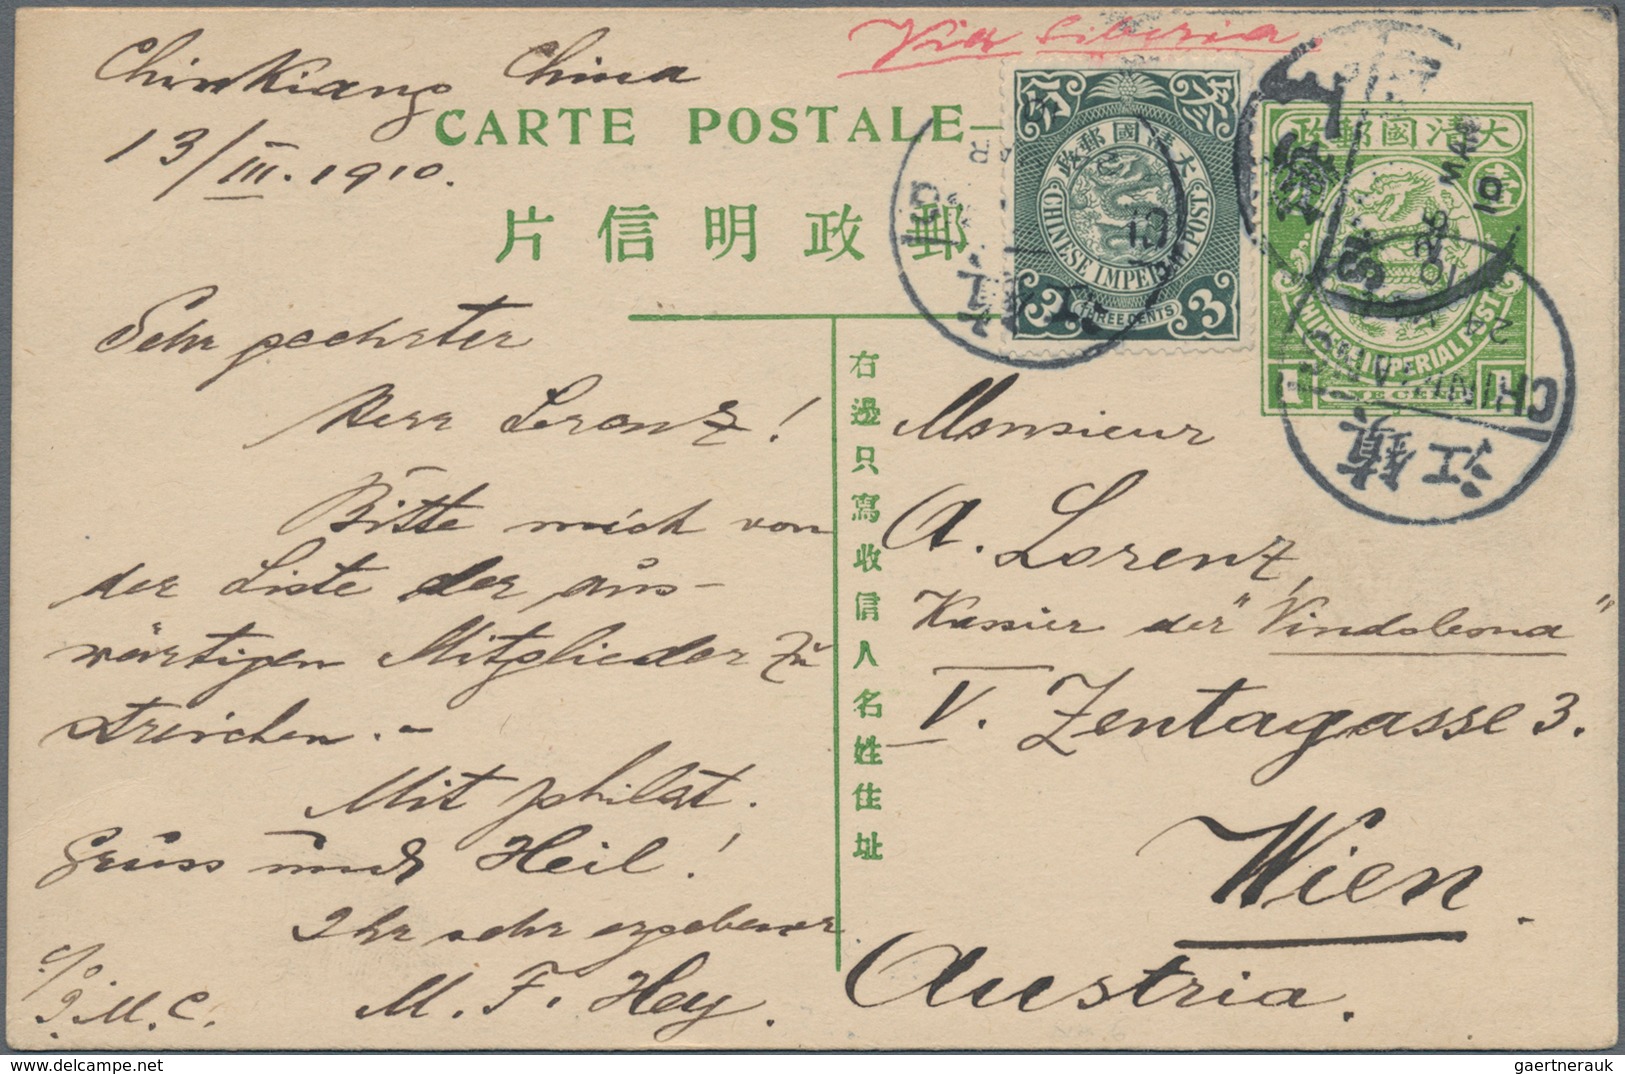 Via Siberia.
Chinkiang China
13/III. 1910.
CARTE POSTALE
郵政明信片
大清國郵政
CHINESE IMPERIAL POST
3 THREE CENTS 3
大清國郵政
壹
CHINESE IMPERIAL POST
1 ONE CENT 1
MAR
10
鎮江
CHINKIANG
右邊只寫收信人名姓住址
Sehr geehrter
Herr Lorenz!
Bitte mich von
der Liste der aus-
wärtigen Mitglieder zu
streichen. –
Mit philat.
Gruss und Heil!
Ihr sehr ergebener
M. F. Hey.
c/o
I.M.C.
Monsieur
A. Lorenz,
Kassier der "Vindobona"
V. Zentagasse 3.
Wien.
Austria.
gaertnerauk